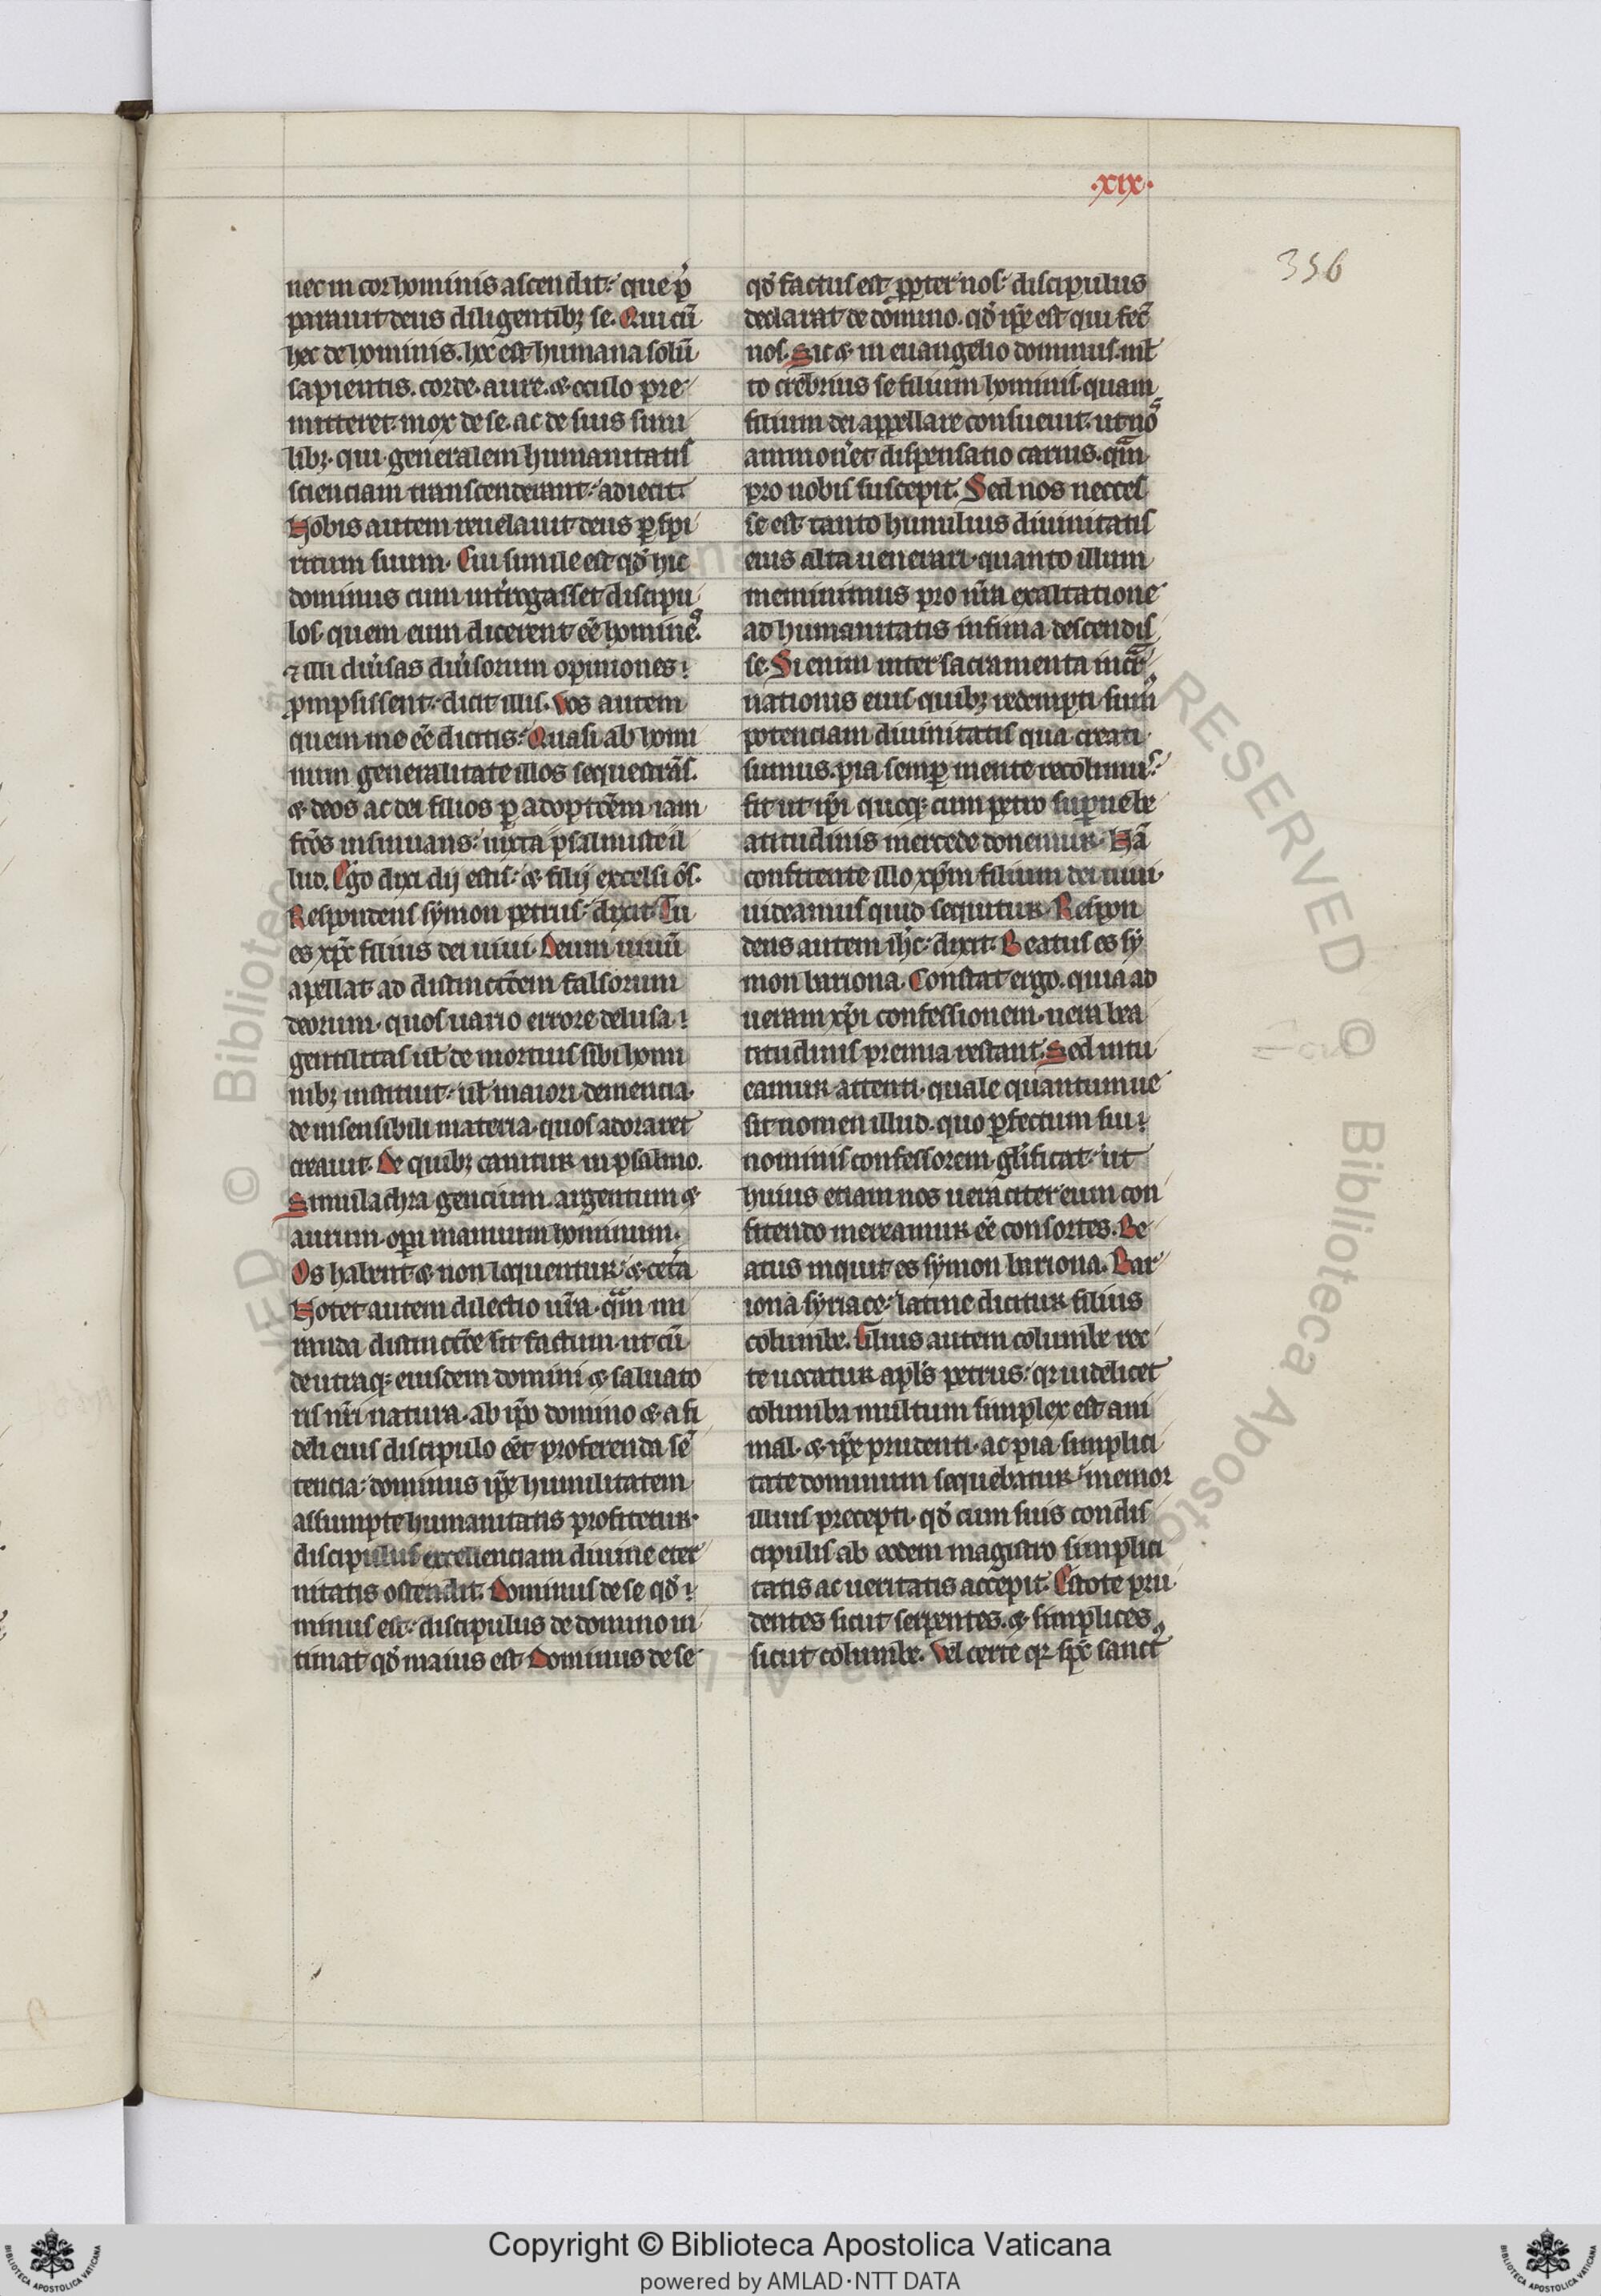 ·xıx·
356
nec in cor hominis ascendit: que p̄
parauit deus diligentibꝫ se. Qui cū
hec de hominis. hec est humana solū
sapientis. corde. aure. ⁊ oculo pre
mitteret. mox de se. ac de suis simi
libꝫ. qui generalem humanitatis
scienciam transcenderant: adiecit.
Nobis autem reuelauit deus ꝑ spi
ritum suum. Cui simile est qđ hic
dominus cum introgasset discipu
los. quem eum dicerent eē hominēs.
⁊ illi diu͛sas diu͛sorum opiniones
ꝓmpsissent: dicit illis. Vos autem
quem me eē dicitis: Quasi ab homi
num generalitate illos sequestrās.
⁊ deos ac dei filios ꝑ adoptōēm iam
fc̄os insinuans: iuxta psalmiste il
lud. Ego dixi dij estis: ⁊ filij excelsi ōs.
Respondens symon petrus: dixit. Tu
es xp̄c filius dei uiui. Deum uiuū
apellat ad distincc̄oem falsorum
deorum. quos uario errore delusa
gentilitas ul̄ de mortuis sibi homi
nibꝫ instituit: ul̄ maiori demencia.
de insensibili materia. quos adoraret
creauit. De quibꝫ canitur in psalmo.
Simulachra gencium. argentum ⁊
aurum. oꝑa manuum hominum.
Os habent ⁊ non loquentur. ⁊ cet͛a
Notet autem dilectio ur̄a. qm̄ mi
randa distincc̄oe sit factum. ut cū
de utraqꝫ eiusdem domini ⁊ saluato
ris nr̄i natura. ab ip̄o domino ⁊ a fi
deli eius discipulo eēt proferenda sē
tencia: dominus ip̄e humilitatem
assumpte humanitatis profitetur.
discipulus excellenciam diuine eter
nitatis ostendit. Dominus de se qđ
minus est: discipulus de domino in
timat qđ maius est. Dominus de se
qđ factus est ꝓpter nos: discipulus
declarat de domino. qđ ip̄e est qui fec̄
nos. Sic ⁊ in euangelio dominus. ml̄
to crebrius se filium hominis. quam
filium dei appellare consueuit. ut nos
ammon͛et dispensatio carius. qm̄
pro nobis suscepit. Sed nos necces
se est tanto humilius diuinitatis
eius alta uenerari. quanto illum
meminimus pro nr̄a exaltatione
ad humanitatis infima descendis
se. Si enim inter sacramenta incar
nationis eius quibꝫ redempti sum͛
potenciam diuinitatis qua creati
sumus. pia semꝑ mente recolimus:
fit ut ip̄i quoqꝫ cum petro suꝑne be
atitudinis mercede donemur. Nā
confitente illo xp̄m filium dei uiui.
uideamus quid sequitur. Respon
dens autem ih̄c: dixit. Beatus es sy
mon bariona. Constat ergo. quia ad
ueram xp̄i confessionem. uera bea
titudinis premia restant. Sed intu
eamur attenti. quale quantumue
sit nomen illud. quo ꝑfectum sui
nominis confessorem gl̄ificat: ut
huius etiam nos ueraciter eum con
fitendo mereamur eē consortes. Be
atus inquit es symon bariona. Bar
iona syriace: latine dicitur filius
columbe. Filius autem columbe rec
te uocatur apl̄s petrus: qr uidelicet
columba multum simplex est ani
mal. ⁊ ip̄e prudenti. ac pia simplici
tate dominum sequebatur: memor
illius precepti. qđ cum suis condis
cipulis ab eodem magistro simplici
tatis ac ueritatis accepit. Estote pru
dentes sicut serpentes. ⁊ simplices
sicut columbe. Vel certe qr sp̄c sanct͛
RESERVED © Biblioteca Apostolica
Copyright © Biblioteca Apostolica Vaticana
powered by AMLAD·NTT DATA
BIBLIOTECA APOSTOLICA VATICANA
BIBLIOTECA APOSTOLICA VATICANA